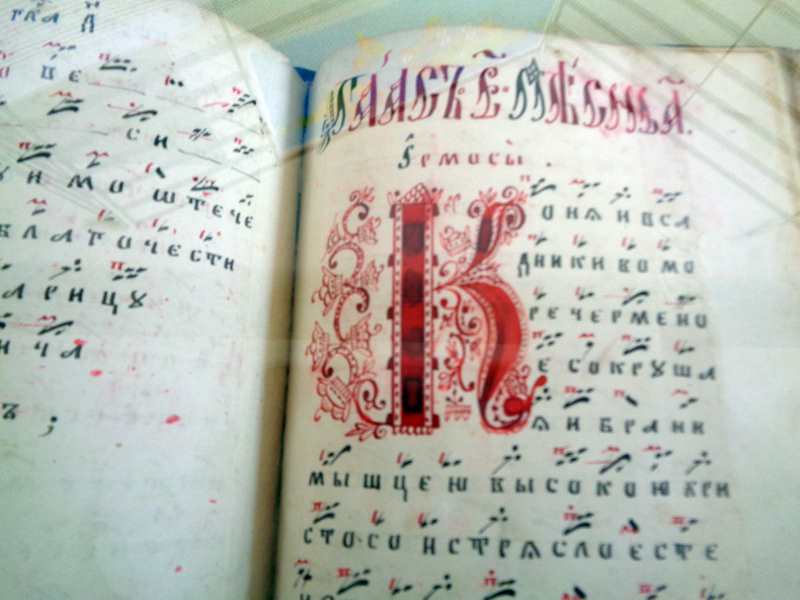 це
си
имо штече
благочести
арицꙋ
нча
ъ ;
Гласъ є҃. Пѣснь а҃.
Ермосы.
Конѧ и вса
дники во мо
ре чермено
е сокрꙋша
ѧи брани
мышцею высокою хри
стосо истрѧсло есте